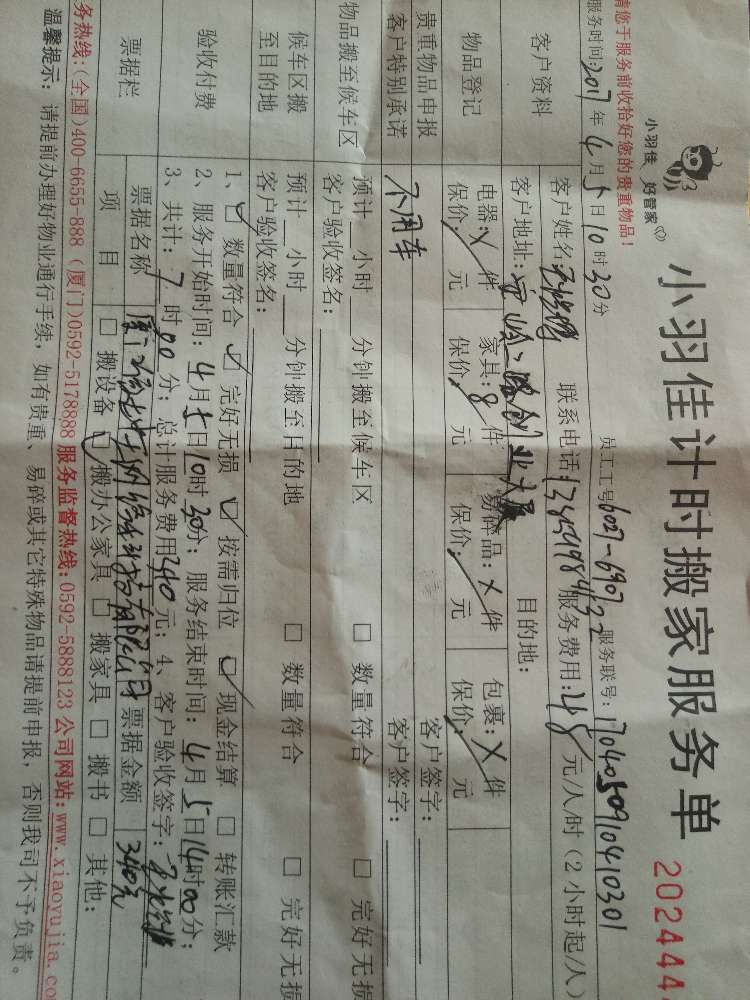 小羽佳 好管家
小羽佳计时搬家服务单
202444
请您于服务前收拾好您的贵重物品！
员工工号
服务联号: 1704050910410301
服务时间: 2017年4月5日10时30分
客户资料
客户姓名
联系电话:
服务费用: 48元/人/时(2小时起/人)
客户地址:
目的地:
物品登记
电器: X件 家具: 8件 易碎品: X件 包裹: X件
保价: 元 保价: 元 保价: 元 保价: 元
贵重物品申报
客户签字:
客户特别承诺
不用车
客户签字:
物品搬至候车区
预计__小时__分钟搬至候车区 □ 数量符合 □ 完好无损
客户验收签名:
候车区搬至目的地
预计__小时__分钟搬至目的地 □ 数量符合 □ 完好无损
客户验收签名:
验收付费
1、☑ 数量符合 ☑ 完好无损 ☑ 按需归位 ☑ 现金结算 □ 转账汇款
2、服务开始时间: 4月5日10时30分; 服务结束时间: 4月5日14时00分;
3、共计: 7时00分; 总计服务费用340元; 4、客户验收签字:
票据栏
票据名称
票据金额 340元
项目 □ 搬设备 ☑ 搬办公家具 □ 搬家具 □ 搬书 □ 其他:
务热线:(全国)400-6655-888 (厦门)0592-5178888 服务监督热线:0592-5888123 公司网站: www.xiaoyujia.co
温馨提示: 请提前办理好物业通行手续, 如有贵重、易碎或其它特殊物品请提前申报, 否则我司不予负责。